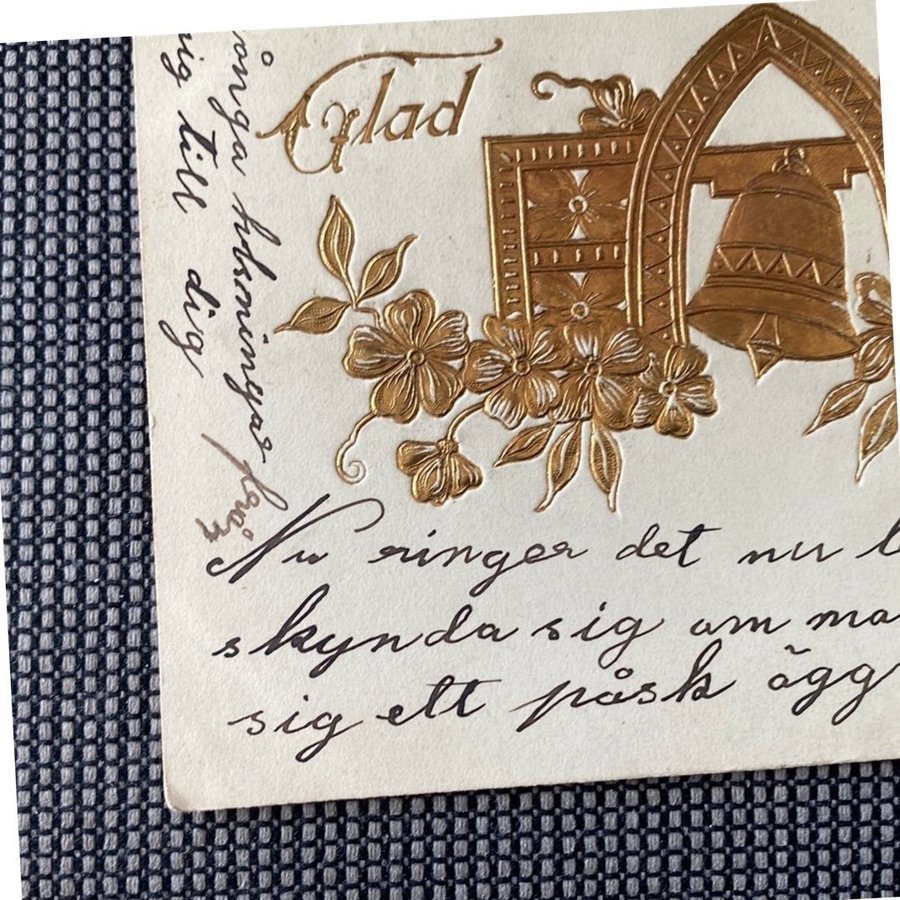 Glad
ånga helsningar från
mig till dig
Nu ringer det nu
skynda sig om ma
sig ett påsk ägg